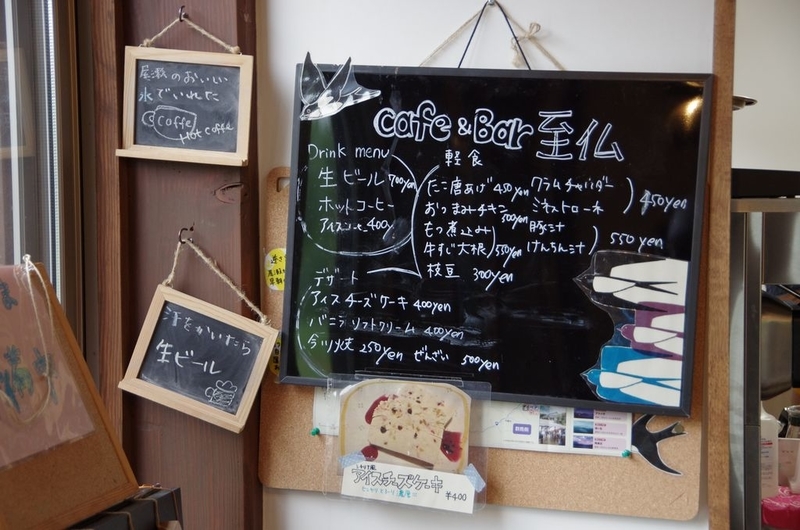 尾瀬のおいしい
水でいれた
Coffe
Hot coffe
汗をかいたら
生ビール
cafe & Bar 至仏
Drink menu
生ビール 700yen
ホットコーヒー
アイスコーヒー 400y
軽食
たこ唐あげ 450yen
おつまみチキン 500yen
もつ煮込み
牛すじ大根 550yen
枝豆 300yen
クラムチャウダー
ミネストローネ 450yen
豚汁
けんちん汁 550yen
デザート
アイスチーズケーキ 400yen
バニラソフトクリーム 400yen
今川焼 250yen ぜんざい 500yen
アイスチーズケーキ
¥400